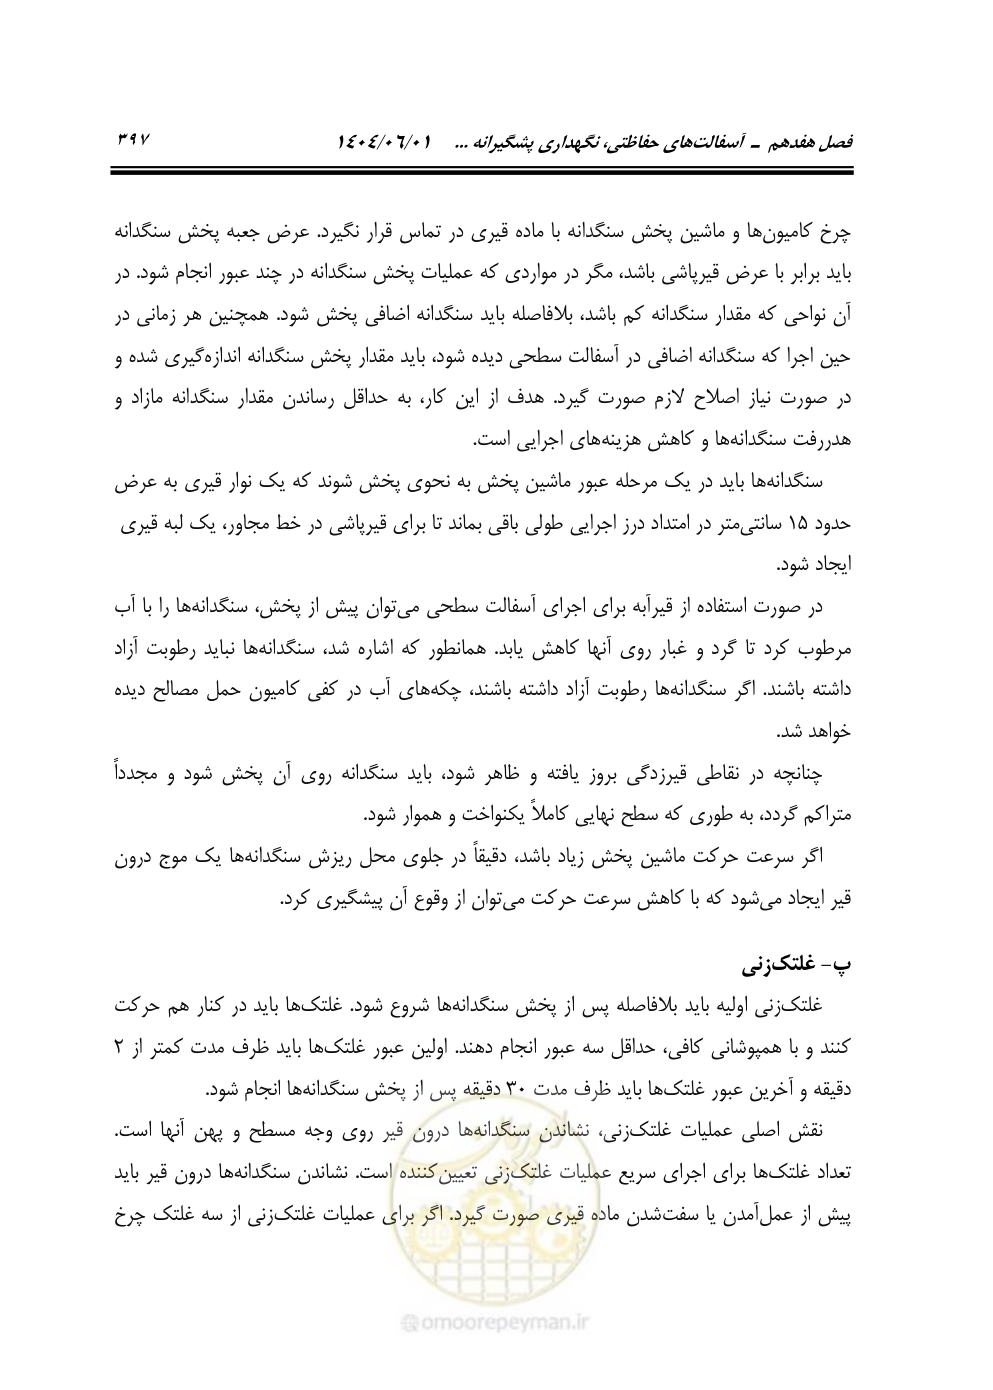 فصل هفدهم ـ آسفالت‌های حفاظتی، نگهداری پیشگیرانه ... ۱۴۰۴/۰۶/۰۱ ۳۹۷
چرخ کامیون‌ها و ماشین پخش سنگدانه با ماده قیری در تماس قرار نگیرد. عرض جعبه پخش سنگدانه
باید برابر با عرض قیرپاشی باشد، مگر در مواردی که عملیات پخش سنگدانه در چند عبور انجام شود. در
آن نواحی که مقدار سنگدانه کم باشد، بلافاصله باید سنگدانه اضافی پخش شود. همچنین هر زمانی در
حین اجرا که سنگدانه اضافی در آسفالت سطحی دیده شود، باید مقدار پخش سنگدانه اندازه‌گیری شده و
در صورت نیاز اصلاح لازم صورت گیرد. هدف از این کار، به حداقل رساندن مقدار سنگدانه مازاد و
هدررفت سنگدانه‌ها و کاهش هزینه‌های اجرایی است.
سنگدانه‌ها باید در یک مرحله عبور ماشین پخش به نحوی پخش شوند که یک نوار قیری به عرض
حدود ۱۵ سانتی‌متر در امتداد درز اجرایی طولی باقی بماند تا برای قیرپاشی در خط مجاور، یک لبه قیری
ایجاد شود.
در صورت استفاده از قیرآبه برای اجرای آسفالت سطحی می‌توان پیش از پخش، سنگدانه‌ها را با آب
مرطوب کرد تا گرد و غبار روی آنها کاهش یابد. همانطور که اشاره شد، سنگدانه‌ها نباید رطوبت آزاد
داشته باشند. اگر سنگدانه‌ها رطوبت آزاد داشته باشند، چکه‌های آب در کفی کامیون حمل مصالح دیده
خواهد شد.
چنانچه در نقاطی قیرزدگی بروز یافته و ظاهر شود، باید سنگدانه روی آن پخش شود و مجدداً
متراکم گردد، به طوری که سطح نهایی کاملاً یکنواخت و هموار شود.
اگر سرعت حرکت ماشین پخش زیاد باشد، دقیقاً در جلوی محل ریزش سنگدانه‌ها یک موج درون
قیر ایجاد می‌شود که با کاهش سرعت حرکت می‌توان از وقوع آن پیشگیری کرد.
پ- غلتک‌زنی
غلتک‌زنی اولیه باید بلافاصله پس از پخش سنگدانه‌ها شروع شود. غلتک‌ها باید در کنار هم حرکت
کنند و با همپوشانی کافی، حداقل سه عبور انجام دهند. اولین عبور غلتک‌ها باید ظرف مدت کمتر از ۲
دقیقه و آخرین عبور غلتک‌ها باید ظرف مدت ۳۰ دقیقه پس از پخش سنگدانه‌ها انجام شود.
نقش اصلی عملیات غلتک‌زنی، نشاندن سنگدانه‌ها درون قیر روی وجه مسطح و پهن آنها است.
تعداد غلتک‌ها برای اجرای سریع عملیات غلتک‌زنی تعیین‌کننده است. نشاندن سنگدانه‌ها درون قیر باید
پیش از عمل‌آمدن یا سفت‌شدن ماده قیری صورت گیرد. اگر برای عملیات غلتک‌زنی از سه غلتک چرخ
@omoorepeyman.ir